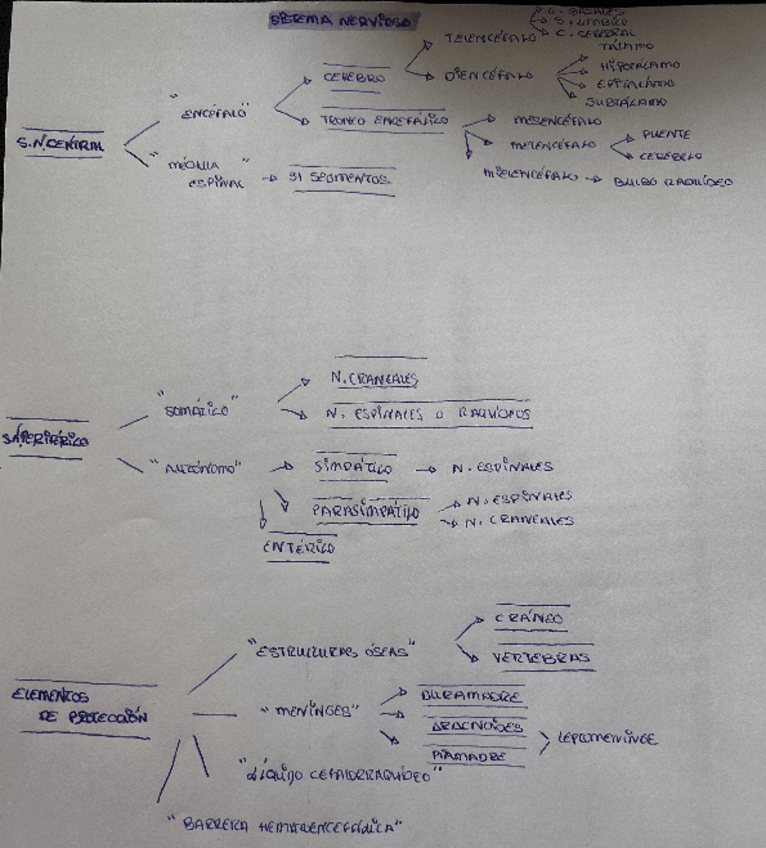 SISTEMA NERVIOSO
G. BASALES
S. LÍMBICO
TELENCÉFALO
C. CEREBRAL
TÁLAMO
CEREBRO
DIENCÉFALO
HIPOTÁLAMO
EPITÁLAMO
SUBTÁLAMO
"ENCÉFALO"
TRONCO ENCEFÁLICO
MESENCÉFALO
S.N. CENTRAL
METENCÉFALO
PUENTE
CEREBELO
"MÉDULA
ESPINAL"
31 SEGMENTOS
MIELENCÉFALO
BULBO RAQUÍDEO
N. CRANEALES
"SOMÁTICO"
N. ESPINALES O RAQUÍDEOS
S.N. PERIFÉRICO
"AUTÓNOMO"
SIMPÁTICO
N. ESPINALES
PARASIMPÁTICO
N. ESPINALES
N. CRANEALES
ENTÉRICO
CRÁNEO
"ESTRUCTURAS ÓSEAS"
VERTEBRAS
ELEMENTOS
DE PROTECCIÓN
"MENINGES"
DURAMADRE
ARACNOIDES
PIAMADRE
LEPTOMENINGE
"LÍQUIDO CEFALORRAQUÍDEO"
"BARRERA HEMATOENCEFÁLICA"